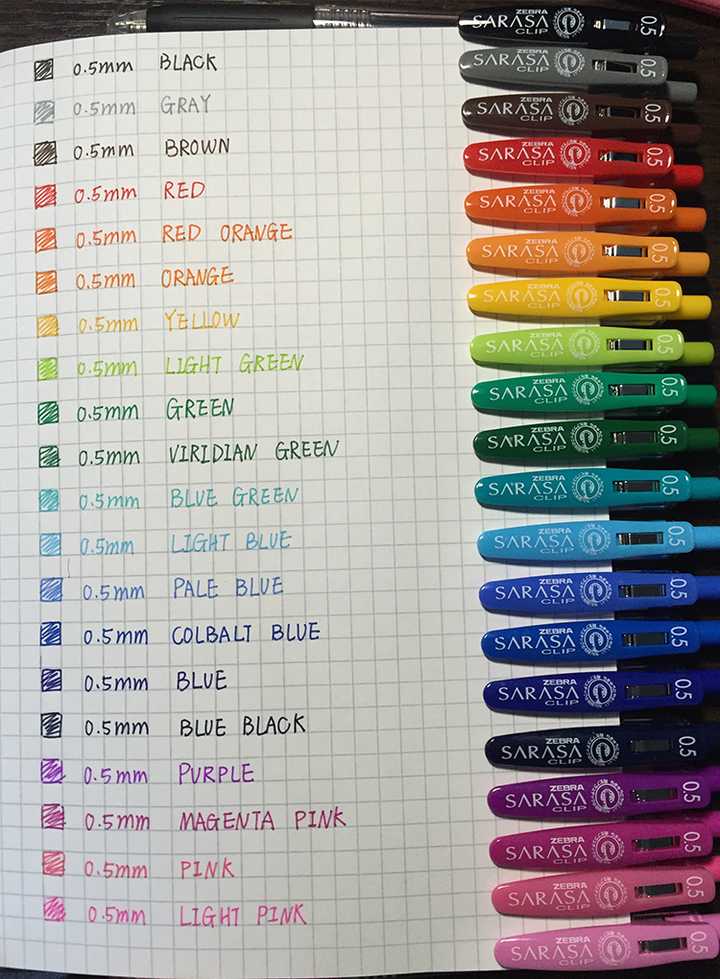 ZEBRA SARASA CLIP 0.5
0.5mm BLACK
ZEBRA SARASA CLIP 0.5
0.5mm GRAY
ZEBRA SARASA CLIP 0.5
0.5mm BROWN
ZEBRA SARASA CLIP 0.5
0.5mm RED
ZEBRA SARASA CLIP 0.5
0.5mm RED ORANGE
ZEBRA SARASA CLIP 0.5
0.5mm ORANGE
ZEBRA SARASA CLIP 0.5
0.5mm YELLOW
ZEBRA SARASA CLIP 0.5
0.5mm LIGHT GREEN
ZEBRA SARASA CLIP 0.5
0.5mm GREEN
ZEBRA SARASA CLIP 0.5
0.5mm VIRIDIAN GREEN
ZEBRA SARASA CLIP 0.5
0.5mm BLUE GREEN
ZEBRA SARASA CLIP 0.5
0.5mm LIGHT BLUE
ZEBRA SARASA CLIP 0.5
0.5mm PALE BLUE
ZEBRA SARASA CLIP 0.5
0.5mm COLBALT BLUE
ZEBRA SARASA CLIP 0.5
0.5mm BLUE
ZEBRA SARASA CLIP 0.5
0.5mm BLUE BLACK
ZEBRA SARASA CLIP 0.5
0.5mm PURPLE
ZEBRA SARASA CLIP 0.5
0.5mm MAGENTA PINK
ZEBRA SARASA CLIP 0.5
0.5mm PINK
ZEBRA SARASA CLIP 0.5
0.5mm LIGHT PINK
ZEBRA SARASA CLIP 0.5